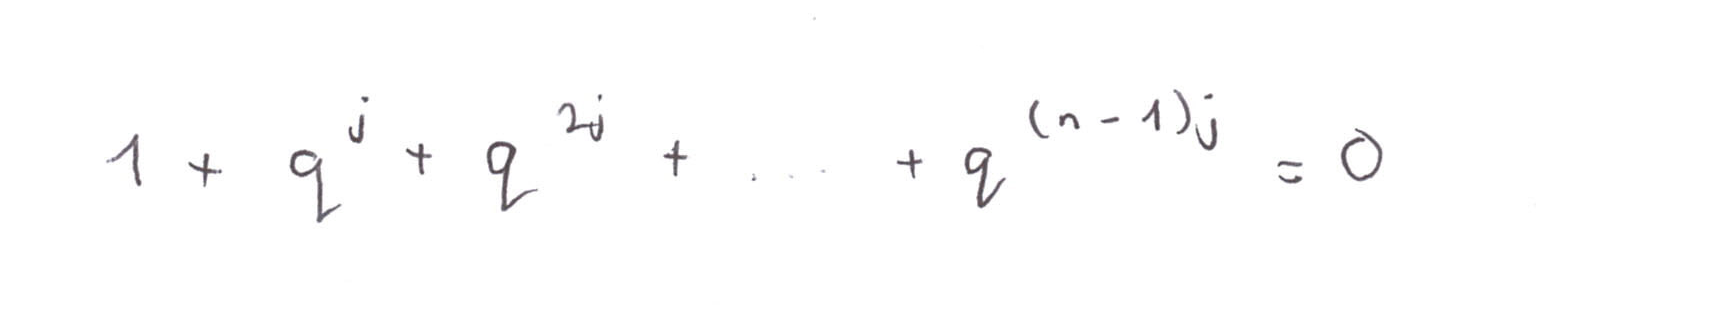 1 + q^j + q^{2j} + ... + q^{(n-1)j} = 0